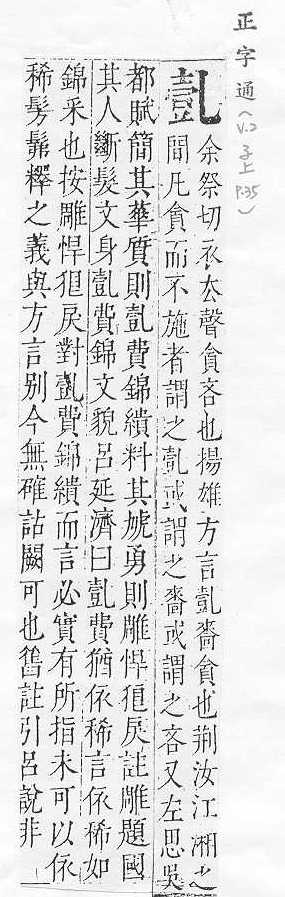 正字通(V.2 子上 P.35)
亄
余祭切衣厺聲貪吝也揚雄方言亄嗇貪也荆汝江湘之
閒凡貪而不施者謂之亄或謂之嗇或謂之吝又左思吳
都賦簡其華質則亄費錦繢料其虓勇則雕悍狼戾註雕題國
其人斷髮文身亄費錦文貌呂延濟曰亄費猶依稀言依稀如
錦采也按雕悍狼戾對亄費錦繢而言必實有所指未可以依
稀髣髴釋之義與方言別今無確詁闕可也舊註引呂說非